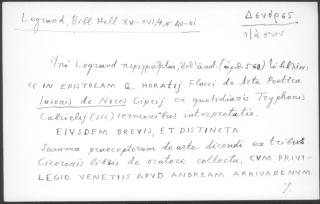 Legrand, Bibl. Hell. XV-XVI, 4, σ. 40-41.
Legrand
« IN EPISTOLAM Q. HORATIJ Flacci de Arte Poetica
Iasonis de Nores Ciprij ex quotidianis Tryphonis
Cabrielij (sic) sermonibus interpretatio.
EIUSDEM BREVIS, ET DISTINCTA
Summa praeceptorum de arte dicendi ex tribus
Ciceronis libris de oratore collecta. CVM PRIVI-
LEGIO VENETIIS APVD ANDREAM ARRIVABENVM